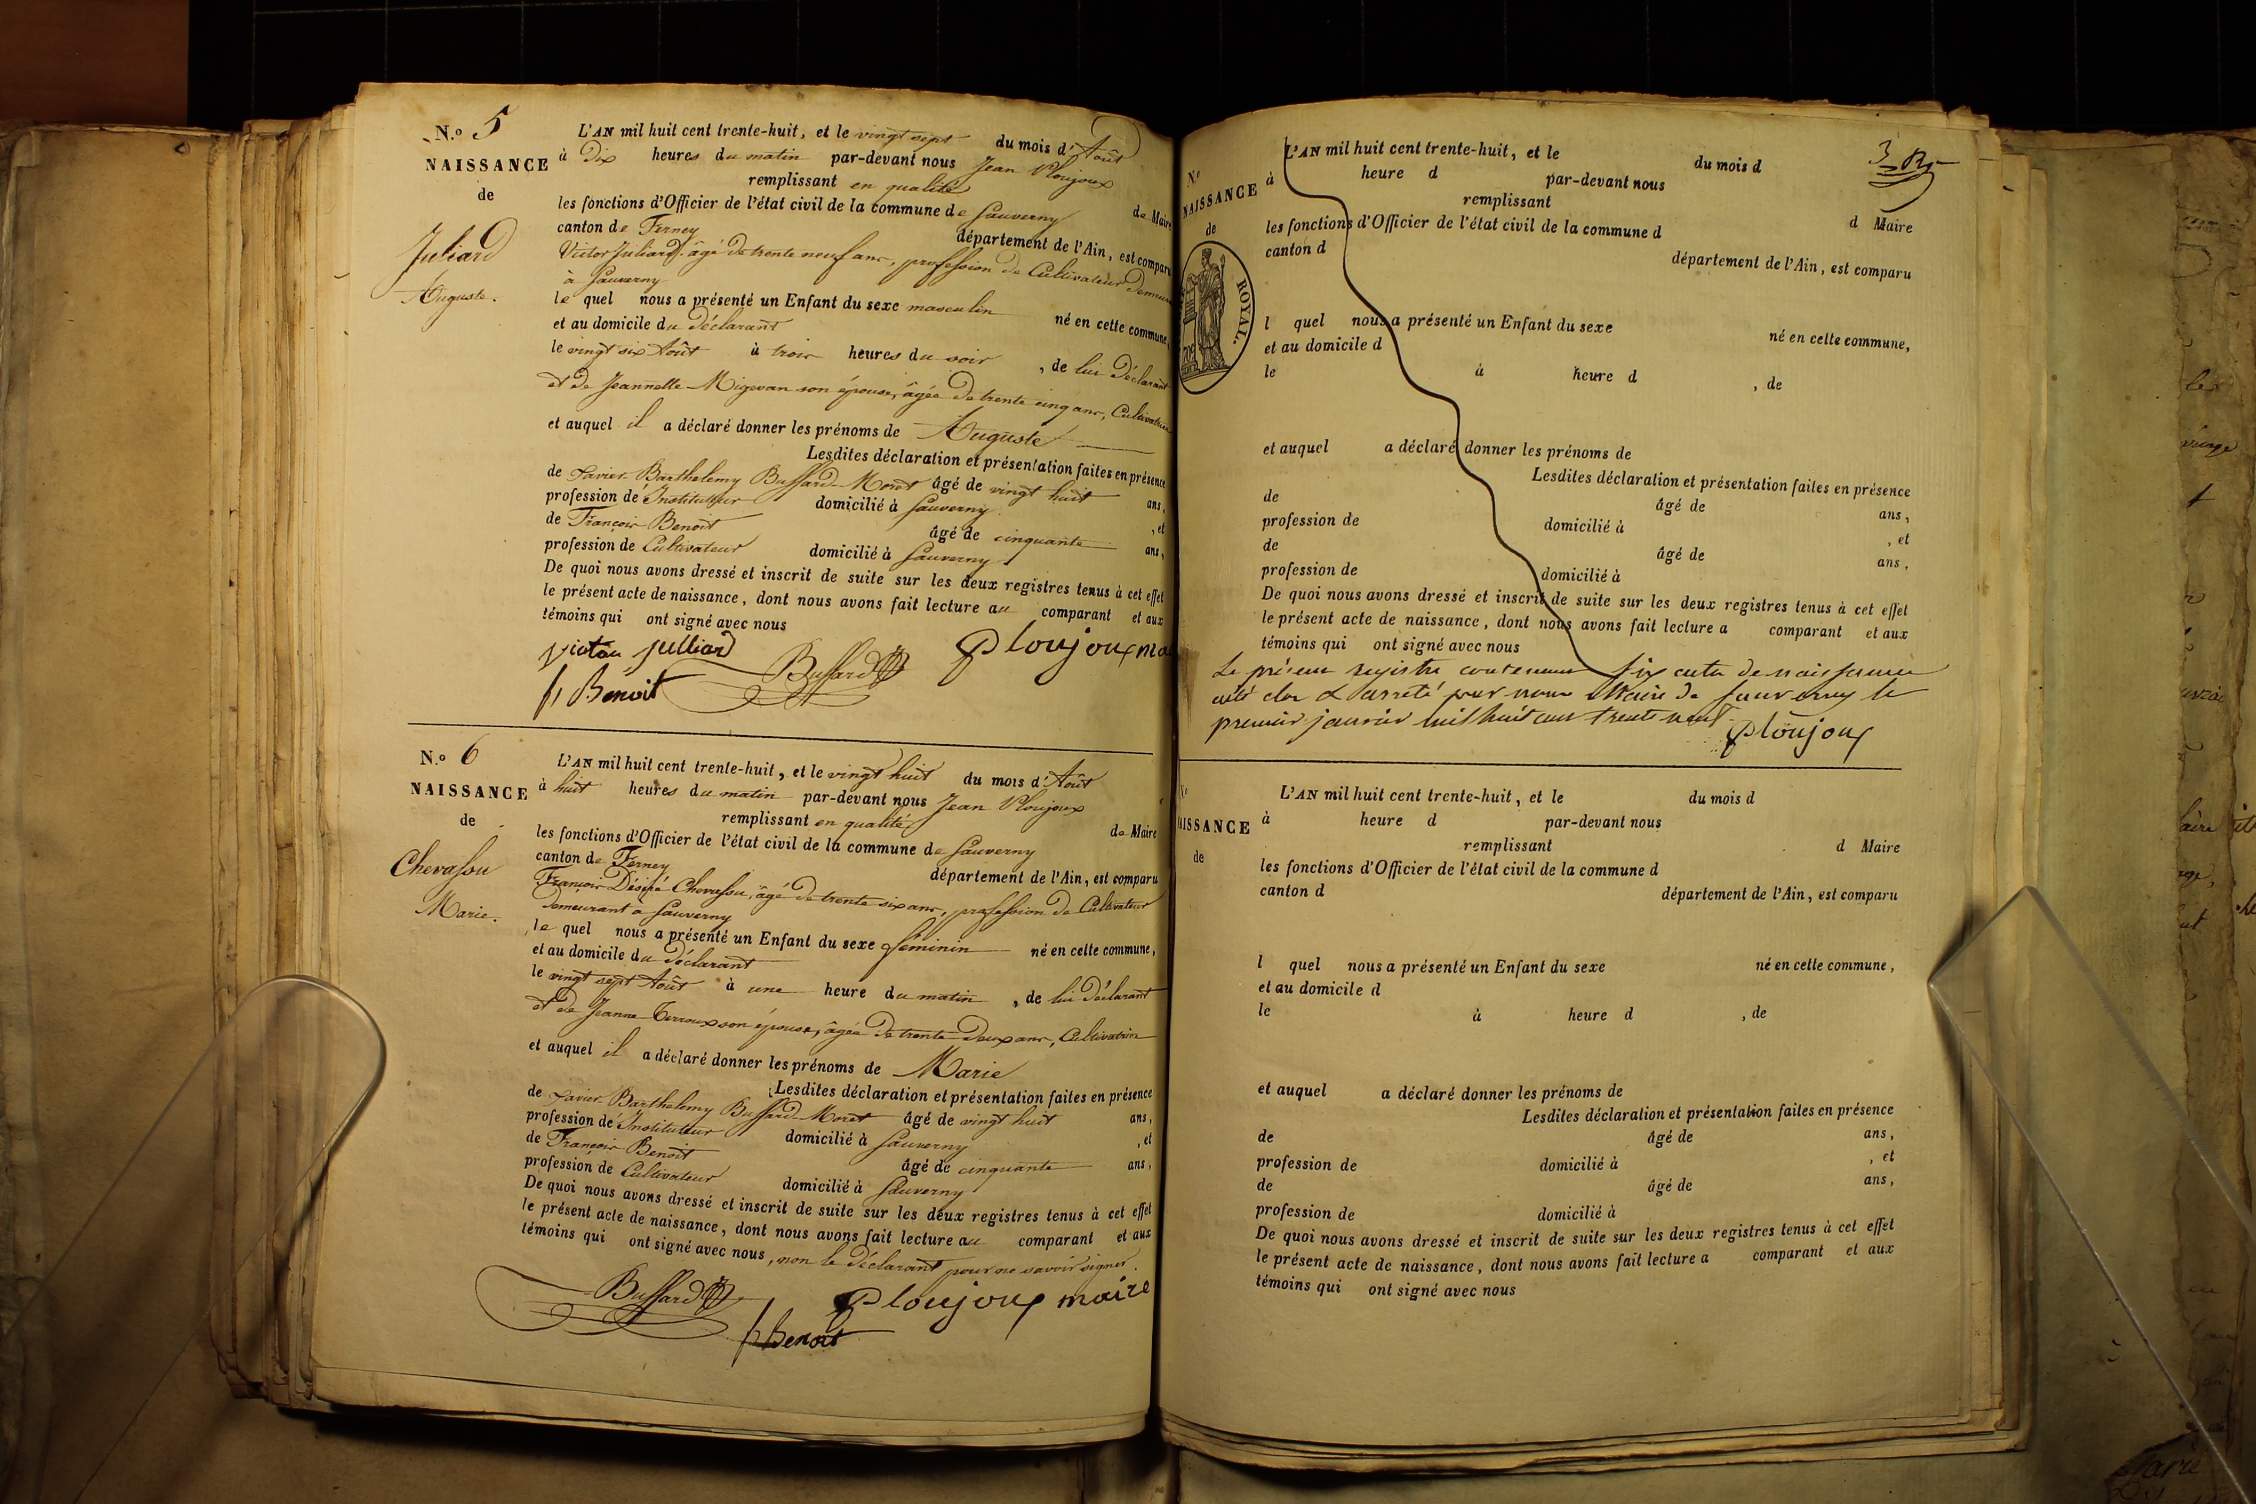 N.o 5
NAISSANCE
de
Juliard
Auguste.
L'AN mil huit cent trente-huit, et le vingt sept du mois d'Août
à Dix heures du matin par-devant nous Jean Ploujoux
remplissant en qualité de Maire
les fonctions d'Officier de l'état civil de la commune de Sauverny
canton de Ferney département de l'Ain, est comparu
Victor Juliard, âgé de trente neuf ans, profession de Cultivateur
à Sauverny
le quel nous a présenté un Enfant du sexe masculin né en cette commune,
et au domicile du Déclarant
le vingt six Août à trois heures du soir, de lui Déclarant
et de Jeannette Migevan son épouse, âgée de trente cinq ans, Cultivatrice
et auquel il a déclaré donner les prénoms de Auguste
Lesdites déclaration et présentation faites en présence
de Xavier Barthelemy Buffard-Moret âgé de vingt huit ans,
profession de Instituteur domicilié à Sauverny, et
de François Benoit âgé de cinquante ans,
profession de Cultivateur domicilié à Sauverny
De quoi nous avons dressé et inscrit de suite sur les deux registres tenus à cet effet
le présent acte de naissance, dont nous avons fait lecture au comparant et aux
témoins qui ont signé avec nous
victor julliard Buffard Ploujoux ma
f Benoit
N.o 6
NAISSANCE
de
Chevassu
Marie.
L'AN mil huit cent trente-huit, et le vingt huit du mois d'Août
à huit heures du matin par-devant nous Jean Ploujoux
remplissant en qualité de Maire
les fonctions d'Officier de l'état civil de la commune de Sauverny
canton de Ferney département de l'Ain, est comparu
François Désiré Chevassu, âgé de trente six ans, profession de Cultivateur
demeurant à Sauverny
le quel nous a présenté un Enfant du sexe féminin né en cette commune,
et au domicile du Déclarant
le vingt sept Août à une heure du matin, de lui Déclarant
et de Jeanne Terroux son épouse, âgée de trente deux ans, Cultivatrice
et auquel il a déclaré donner les prénoms de Marie
Lesdites déclaration et présentation faites en présence
de Xavier Barthelemy Buffard-Moret âgé de vingt huit ans,
profession de Instituteur domicilié à Sauverny, et
de François Benoit âgé de cinquante ans,
profession de Cultivateur domicilié à Sauverny
De quoi nous avons dressé et inscrit de suite sur les deux registres tenus à cet effet
le présent acte de naissance, dont nous avons fait lecture au comparant et aux
témoins qui ont signé avec nous, non le déclarant pour ne savoir signer.
Buffard Ploujoux maire
f Benoit
N.o
NAISSANCE
de
ROYAL.
L'AN mil huit cent trente-huit, et le du mois d
à heure d par-devant nous
remplissant d Maire
les fonctions d'Officier de l'état civil de la commune d
canton d département de l'Ain, est comparu
l quel nous a présenté un Enfant du sexe né en cette commune,
et au domicile d
le à heure d , de
et auquel a déclaré donner les prénoms de
Lesdites déclaration et présentation faites en présence
de âgé de ans,
profession de domicilié à , et
de âgé de ans,
profession de domicilié à
De quoi nous avons dressé et inscrit de suite sur les deux registres tenus à cet effet
le présent acte de naissance, dont nous avons fait lecture a comparant et aux
témoins qui ont signé avec nous
Le présent registre contenant six acte de naissance
été clos & arreté par nous Maire de Sauverny le
premier janvier mil huit cent trente neuf
Ploujoux
N.o
AISSANCE
de
L'AN mil huit cent trente-huit, et le du mois d
à heure d par-devant nous
remplissant d Maire
les fonctions d'Officier de l'état civil de la commune d
canton d département de l'Ain, est comparu
l quel nous a présenté un Enfant du sexe né en cette commune,
et au domicile d
le à heure d , de
et auquel a déclaré donner les prénoms de
Lesdites déclaration et présentation faites en présence
de âgé de ans,
profession de domicilié à , et
de âgé de ans,
profession de domicilié à
De quoi nous avons dressé et inscrit de suite sur les deux registres tenus à cet effet
le présent acte de naissance, dont nous avons fait lecture a comparant et aux
témoins qui ont signé avec nous